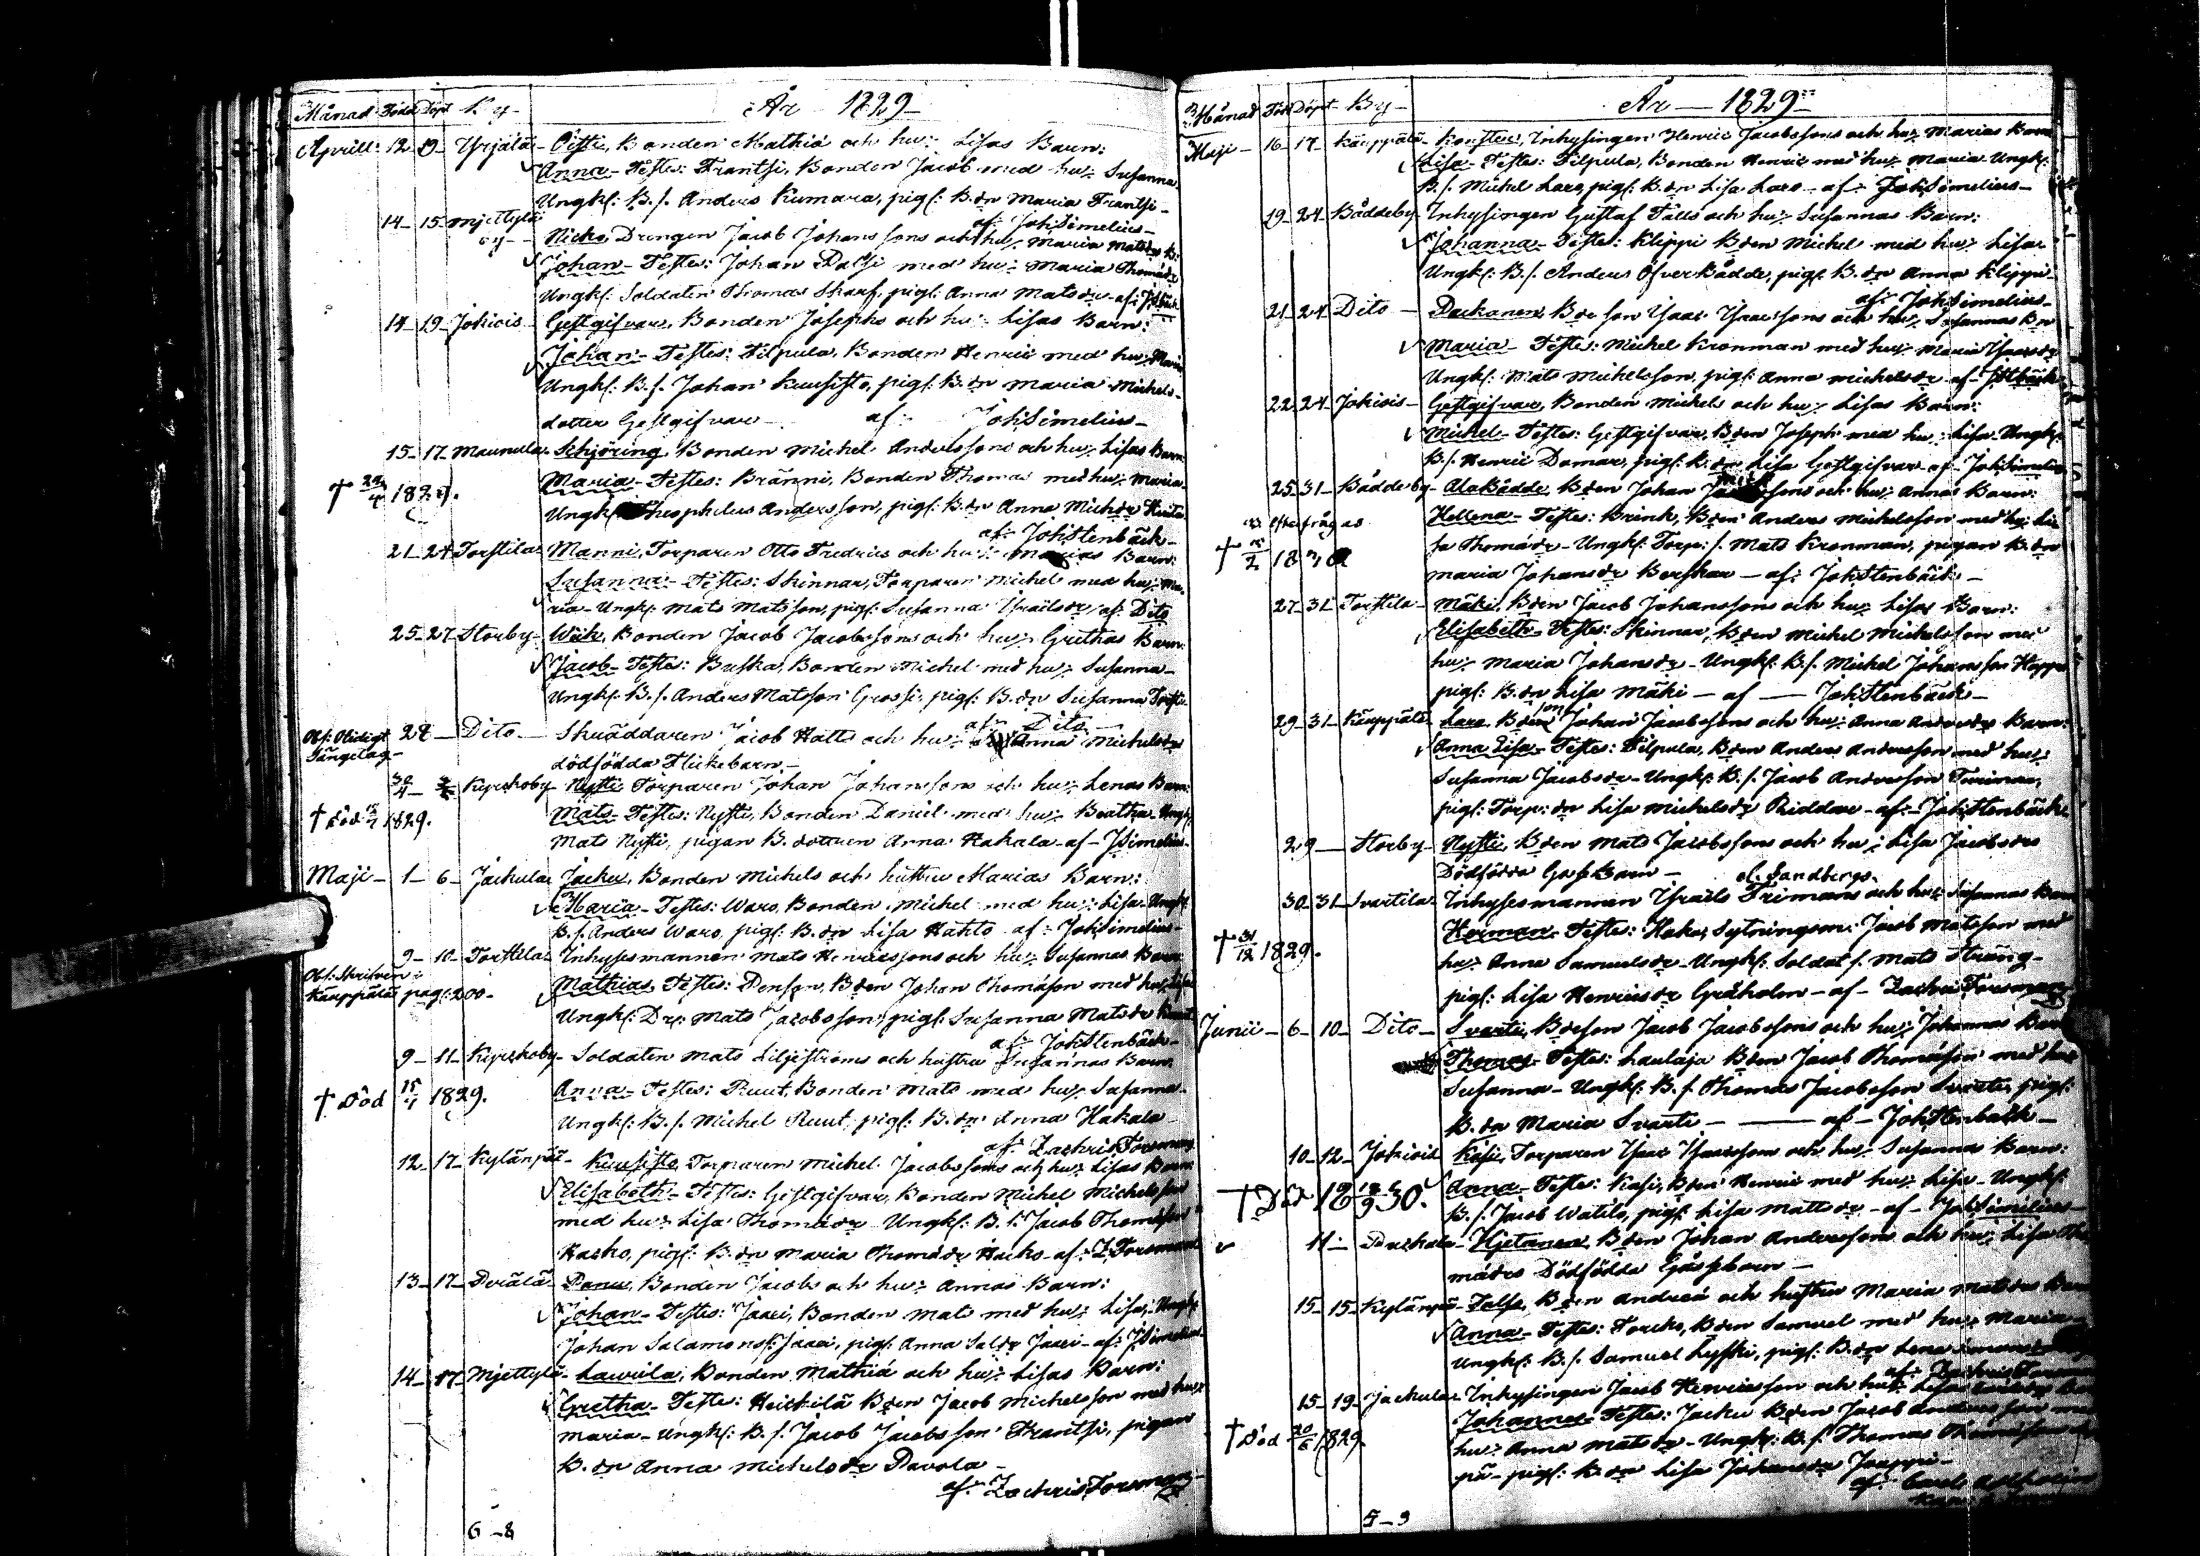 Månad Född Döpt By År 1829
Aprill: 12 19 Yrjälä Öisti, Bonden Mathiæ och hu: Lisas Barn:
Anna - Testes: Frantsi, Bonden Jacob med hu: Susanna
Ungk: B. s. Anders Kumara, pig: B. dr Maria Frantsi -
af: Joh Simelius -
14 - 15 Mjettylä by - Nicko, Drengen Jacob Johans sons och hu: Maria Matsdrs B:
Johan - Testes: Johan Palsi med hu: Maria Thomædr
Ungk: Soldaten Thomas Skarf, pig: Anna Matsdr - af:
14 - 19 Jokiois Gestgifvar, Bonden Josephs och hu: Lisas Barn:
Johan - Testes: Filpula, Bonden Henric med hu: Maria
Ungk: B. s. Johan Kuusisto, pig: B. dr Maria Michels-
dotter Gestgifvar - af: Joh Simelius -
15 - 17 Maunula Schjöring, Bonden Michel Anderssons och hu: Lisas Barn
Maria - Testes: Bränni, Bonden Thomas med hu: Maria
Ungk: Theophilus Andersson, pig: B. dr Anna Michdr
af: Joh Stenbäck -
21 - 24 Torstila Manni, Torparen Otto Fredrics och hu: Marias Barn:
Susanna - Testes: Skinnar, Torparen Michel med hu: Ma-
ria - Ungk: Mats Matsson, pig: Susanna Israelsdr af: Dito
25 - 27 Storby - Wiik, Bonden Jacob Jacobssons och hu: Grethas Barn:
Jacob - Testes: Buska, Bonden Michel med hu: Susanna -
Ungk: B. s. Anders Matsson Grossi, pig: B. dr Susanna
af: Dito
28 - Dito - Skräddaren Jacob Hatts och hu: Anna Michelsdrs
dödfödda Flickebarn -
30/4 Kyrckoby Nysti Torparen Johan Johanssons och hu: Lenas Barn:
† död 1829. Mats - Testes: Nysti, Bonden Daniel med hu: Beatha Ungk:
Mats Nysti, pigan B. dottren Anna Hakala - af - J Simelius -
Maji - 1 - 6 - Jackula Jacku, Bonden Michels och hustru Marias Barn:
Maria - Testes: Waro, Bonden Michel med hu: Lisa - Ungk:
B. s. Anders Waro, pig: B. dr Lisa Hahto af: Joh Simelius -
9 - 10 - Torstila Inhysesmannen Mats Henricssons och hu: Susannas Barn
Obs: Skrifven i Käuppilä pag: 200 - Mathias Testes: Penson, B den Johan Thomæson med hu: Lisa
Ungk: Dr: Mats Jacobsson, pig: Susanna Matsdr
af: Joh Stenbäck -
9 - 11 - Kyrckoby - Soldaten Mats Liljeströms och hustru Susannas Barn:
† Död 1829. Anna - Testes: Ruut, Bonden Mats med hu: Susanna -
Ungk: B. s. Michel Ruut, pig: B. dr Anna Hakala -
af: Zachris Forsman
12 - 17 - Kylänpää - Kuusisto, Torparen Michel Jacobssons och hu: Lisas Barn:
Elisabeth - Testes: Gestgifvar, Bonden Michel Michelsson
med hu: Lisa Thomædr - Ungk: B. s. Jacob Thomæson
Hacko, pig: B. dr Maria Thomædr Hacko - af: Z Forsman
13 - 17 - Perälä - Panu, Bonden Jacobs och hu: Annas Barn:
Johan - Testes: Jaari, Bonden Mats med hu: Lisa, Ungk:
Johan Salamonss: Jaari, pig: Anna Saldr Jaari - af: J Simelius
14 - 17 - Mjettylä - Laurila, Bonden Mathiæ och hu: Lisas Barn:
Gretha - Testes: Heickilä B den Jacob Michelsson med hu:
Maria - Ungk: B. s. Jacob Jacobsson Frantsi, pigan
B. dr Anna Michelsdr Pavola -
af: Zachris Forsman
6 - 8

Månad Född Döpt By - År - 1829
Maji - 16 - 17 - Käuppilä - Inhysingen Henric Jacobssons och hu: Marias Barn
Lisa - Testes: Filpula, Bonden Henric med hu: Maria - Ungk:
B. s. Michel Lars, pig: B. dr Lisa Lars - af: Joh Simelius -
19 - 24 - Båddeby - Inhysingen Gustaf Fälts och hu: Susannas Barn:
Johanna - Testes: Klippi B den Michel med hu: Lisa
Ungk: B. s. Anders Öfver Bådde, pig: B. dr Anna Klippi -
af: Joh Simelius -
21 - 24 Dito - Packanen B de son Isaac Isacssons och hu: Susannas Brn
Maria - Testes: Michel Kronman med hu: Maria Isacsdr
Ungk: Mats Michelsson, pig: Anna Michelsdr - af -
22 - 24 - Jokiois - Gestgifvar, Bonden Michels och hu: Lisas Barn:
Michel - Testes: Gestgifvar, B den Joseph med hu: Lisa - Ungk:
B. s. Henric Damar, pig: B. dr Lisa Gestgifvar - af - Joh Simelius
25 - 31 - Båddeby - Ala Bådde, B den Johan sons och hu: Annas Barn:
Hellena - Testes: Brink, B den Anders Michelsson med hu: Li-
sa Thomædr - Ungk: Torp: s. Mats Kronman, pigan B. dr
Maria Johansdr Berskar - af: Joh Stenbäck -
27 - 31 - Torstila - Mäki, B den Jacob Johanssons och hu: Lisas Barn:
Elisabeth - Testes: Skinnar, B den Michel Michelsson med
hu: Maria Johansdr - Ungk: B. s. Michel Johansson Hoppu
pig: B. dr Lisa Mäki - af - Joh Stenbäck -
29 - 31 - Käuppilä - Lars, B den Johan Jacobssons och hu: Anna Andersdrs Barn:
Anna Lisa - Testes: Filpula, B den Anders Andersson med hu:
Susanna Jacobsdr - Ungk: B. s. Jacob Andersson
pig: Torp: dr Lisa Michelsdr Riddar - af - Joh Stenbäck
29 - Storby - Nysti, B den Mats Jacobssons och hu: Lisa Jacobsdrs
Dödfödda Gossbarn - af. Sandbergs.
30 - 31 - Svartila Inhysesmannen Israels Frimans och hu: Susannas Barn
Herman - Testes: Hako, Sytningsm: Jacob Matsson med
† 31/12 1829. hu: Anna Samuelsdr - Ungk: Soldat s. Mats Sträng -
pig: Lisa Henricsdr Gråholm - af - Zachris Forsman
Junii - 6 - 10 - Dito - Svarti, B deson Jacob Jacobssons och hu: Johannas Barn
Thomas - Testes: Laulaja B den Jacob Thomæson med hu:
Susanna - Ungk: B. s. Thomas Jacobsson Svarti, pig:
B. dr Maria Svarti - af - Joh Stenbäck -
10 - 12 - Jokiois Käsi, Torparen Isac Isacssons och hu: Susanna Barn:
† Död 1830. Anna - Testes: Kasi, B den Henric med hu: Lisa - Ungk:
B. s. Jacob Watila, pig: Lisa Mattsdr - af - Joh Simelius -
11 - Hjetanen, B den Johan Anderssons och hu: Lisa Tho-
mædrs Dödfödda Gåssbarn -
15 - 15 - Kylänpää - B den Andreæ och hustru Maria Matsdrs Barn
Anna - Testes: Torcko, B den Samuel med hu: Maria -
Ungk: B. s. Samuel Lyski, pig: B. dr Lena
af: Zachris Forsman
15 - 19 - Jackula - Inhysingen Jacob Henricsson och hu: Lisa
Johannes - Testes: Jacku B den Jacob Andersson med
† Död 20/6 1829. hu: Anna Matsdr - Ungk: B. s. Thomas
pä - pig: B. dr Lisa Johansdr Jaappi -
5 - 9